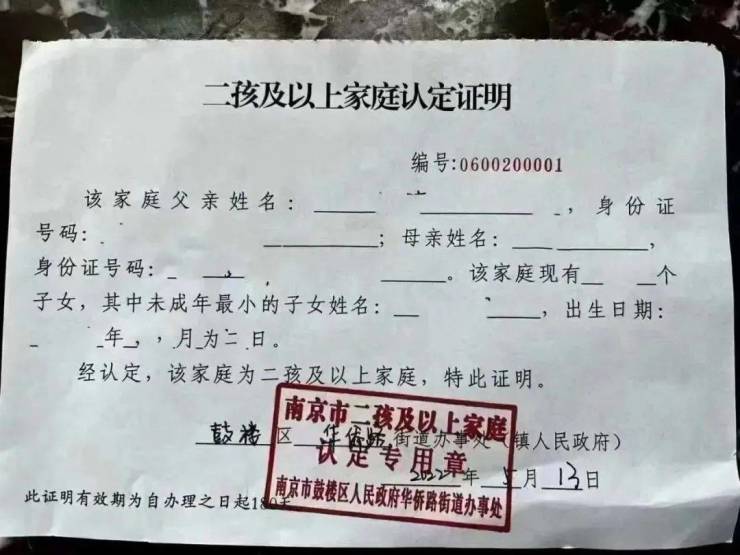 二孩及以上家庭认定证明
编号:0600200001
该家庭父亲姓名: ,身份证
号码: ;母亲姓名: ,
身份证号码: 。该家庭现有 个
子女,其中未成年最小的子女姓名: ,出生日期:
年 月 日。
经认定,该家庭为二孩及以上家庭,特此证明。
鼓楼区 华侨路 街道办事处(镇人民政府)
2022年5月13日
此证明有效期为自办理之日起180天
南京市二孩及以上家庭
认定专用章
南京市鼓楼区人民政府华侨路街道办事处